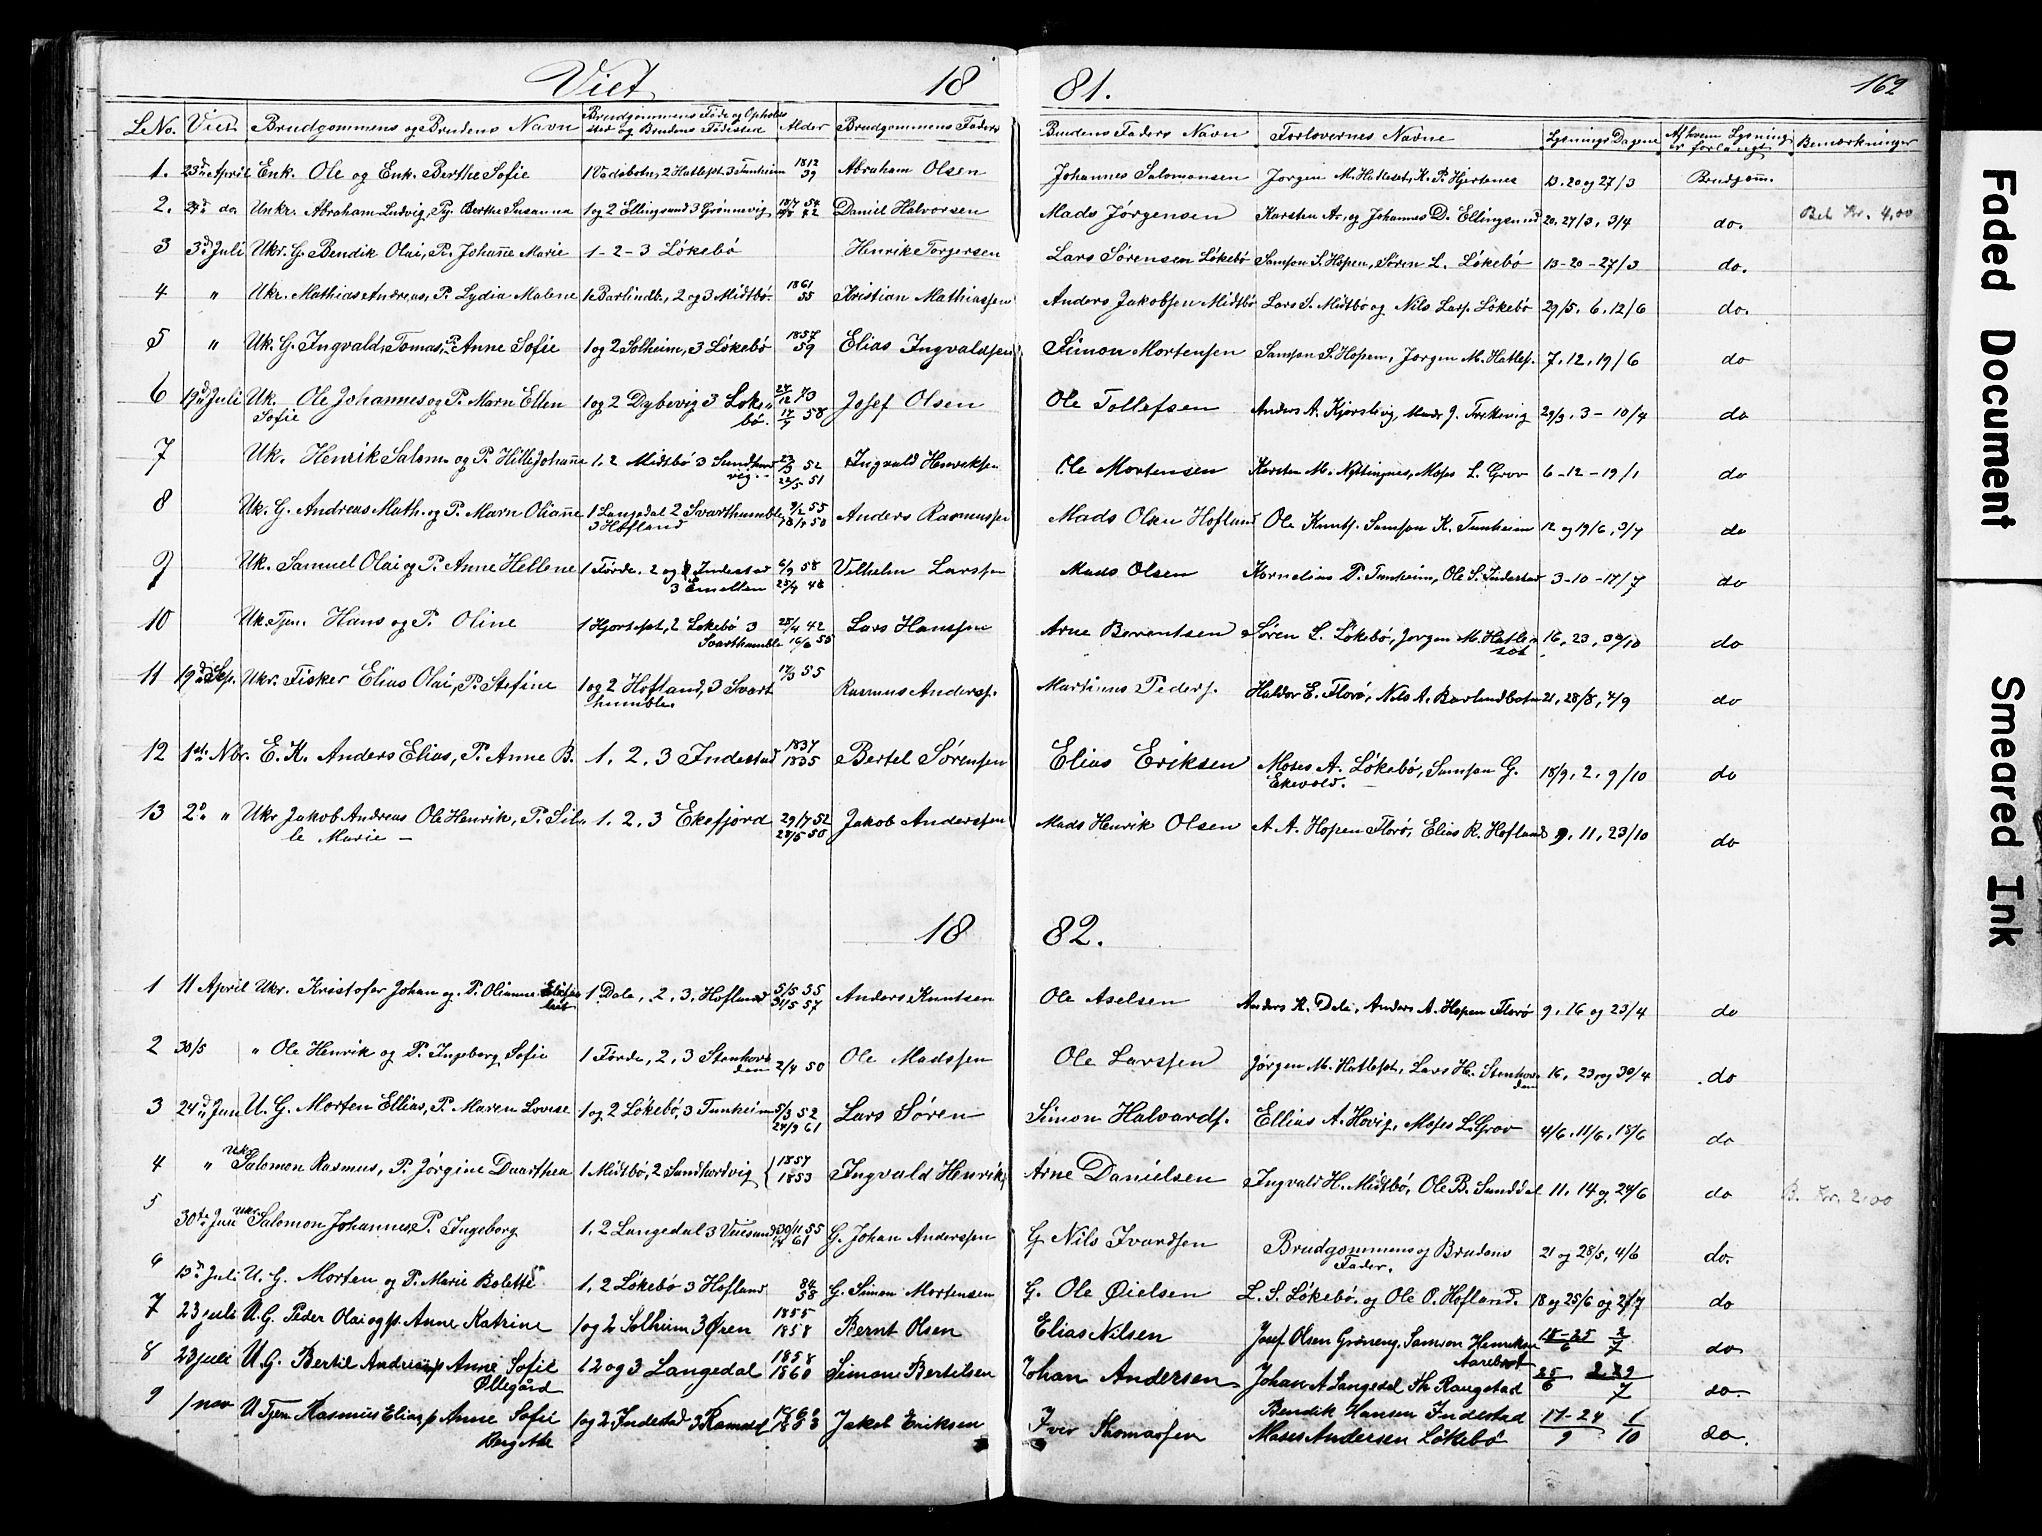 Viet 18 81. 162
L.No. Viet Brudgommens og Brudens Navn Brudgommens Føde og Opholds sted og Brudens Fødested Alder Brudgommens Faders Brudens Faders Navn Forlovernes Navne Lysnings Dagene Af hvem Lysning er forlangt Bemærkninger
1. 23d April Enk. Ole og Enk. Berthe Sofie 1 Vadsbotn, 2 Hatlest 3 Tunheim 1812 39 Abraham Olsen Johannes Salomonsen Jørgen M. Hatleset, K. P. Hjertenes 13. 20 og 27/3 Brudgom.
2. 24d do. Unkr. Abraham Ludvig, Pg. Berthe Susanna 1 og 2 Ellingsund 3 Grønnevig Daniel Halvorsen Mads Jørgensen Karsten A. og Johannes D. Ellingsund 20. 27/3. 3/4 do. Bet Kr. 4,00
3 3d Juli Ukr. G. Bendik Olai, P. Johañe Marie 1 - 2 - 3 Løkebø Henrik Torgersen Lars Sørensen Løkebø Samson S. Hopen, Søren L. Løkebø 13 - 20 - 27/3 do.
4 " Ukr. Mathias Andreas, P. Lydia Malene 1 Barlindb., 2 og 3 Midtbø. 1861 55 Kristian Mathiassen Anders Jakobsen Midtbø Lars S. Midtbø og Nils Lars. Løkebø 29/5. 6. 12/6 do.
5 " Uk. G. Ingvald, Tomas, P. Anne Sofie 1 og 2 Solheim, 3 Løkebø 1857 59 Elias Ingvaldsen Simon Mortensen Samson S. Hopen, Jørgen M. Hatles. 7. 12. 19/6 do
6 19d Juli Uk. Ole Johannes og P. Marn Ellen 1 og 2 Dybevig 3 Løke- Josef Olsen Ole Tollefsen Anders A. Kjørslevig, Mads J. Trekevig 29/3. 3 - 10/4 do
Sofie bø. 58
7 Uk. Henrik Salom. og P. Hille Johañe 1. 2 Midtbø 3 Sundhord 52 Ingvald Henriksen Ole Mortensen Karsten M. Nyttingnes, Moses L. Grov 6 - 12 - 19/1 do
vig. 22/5 51
8 Uk. G. Andreas Math. og P. Marn Oliañe 1 Langedal 2 Svarthumble 9/2 55 Anders Rasmussen Mads Olsen Hofland Ole Knuts. Samson K. Tunheim 12 og 19/6. 3/7 do
3 Hofland 50
9 Uk. Samuel Olai og P. Anne Hellene 1 Førde. 2 og Indestad 6/9 58 Vilhelm Larssen Mads Olsen Kornelius P. Tunheim, Ole S. Indestad 3 - 10 - 17/7 do
3 Smelten 25/4 48
10 Uk. Tjen. Hans og P. Oline 1 Hjortest, 2 Løkebø 3 25/4 42 Lars Hanssen Arne Berentsen Søren L. Løkebø, Jørgen M. Hatle- 16, 23, 30/10 do
Svarthumble 16/6 55 set
11 19d Sep. Ukr. Fisker Elias Olai, P. Stefine 1 og 2 Hofland, 3 Svart 17/3 55 Rasmus Anders. Martinus Peders. Haldor E. Florø, Nils A. Barlandbotn 21, 28/8, 4/9 do
humble.
12 1st Nbr. E. K. Anders Elias, P. Anne B. 1, 2, 3 Indestad 1837 1835 Bertel Sørensen Elias Eriksen Moses A. Løkebø, Samson G. 18/9, 2, 9/10 do
Ekevold.
13 2d " Ukr Jakob Andreas Ole Henrik, P. Sil- 1, 2, 3 Ekefjord 29/7 52 Jakob Anderssen Mads Henrik Olsen A. A. Hopen Florø, Elias R. Hofland 9, 11, 23/10 do
le Marie — 50
18 82.
1 11 April Ukr. Kristofer Johan og P. Olianne Elisa 1 Dale, 2, 3, Hofland 5/5 55 Anders Knutsen Ole Aselsen Anders K. Dale, Anders A. Hopen Florø 9, 16 og 23/4 do
bet 31/5 57
2 30/5 " Ole Henrik og P. Ingeborg Sofie 1 Førde, 2, 3 Stenhov Ole Madssen Ole Larssen Jørgen M. Hatlest, Lars H. Stenhov 16, 23 og 30/4 do
den 2/4 50 den
3 24d Jun U. G. Morten Ellias, P. Maren Lovise 1 og 2 Løkebø, 3 Tunheim 5/3 52 Lars Søren Simon Halvards. Ellias A. Høvig, Moses L. Grov 4/6, 11/6, 18/6 do
24/9 61
4 " Ukr Salomon Rasmus, P. Jørgine Daarthea 1 Midtbø, 2 Sundhordvig 1857 1853 Ingvald Henrik Arne Danielsen Ingvald H. Midtbø, Ole B. Sunddal 11, 14 og 24/6 do B. Kr. 2.00
5 30te Jun Ukr Salomon Johannes P. Ingeborg 1, 2 Langedal 3 30/11 55 61 G. Johan Anderssen G. Nils Ivarssen Brudgommens og Brudens 21 og 28/5, 4/6 do.
Fader.
6 13d Juli U. G. Morten og P. Marie Bolette 1, 2 Løkebø 3 Hofland 84 58 G. Simon Mortensen G. Ole Øielsen L. S. Løkebø. og Ole O. Hofland. 18 og 25/6 og 2/7 do
7 23 juli U. G. Peder Olai og p. Anne Katrine 1 og 2 Solheim 3 Øren 1855 1858 Bernt Olsen Elias Nilsen Josef Olsen Grøneng, Samson Henriksen 18-25/6 2/7 do
Aarebrot
8 23 juli U. G. Bertil Andreas p Anne Sofie 1 2 og 3 Langedal 1858 1860 Simon Bertilsen Johan Andersen Johan A Langedal Th Raugstad 25/6 2. 9/7 do.
Øllegård
9 1 nov U Tjen Rasmus Elias p Anne Sofie 1 og 2 Indestad 3 Ramdal Jakob Eriksen Iver Thomassen Bendik Hansen Indestad 17-24/9 1/10 do.
Bergitte Moses Andersen Løkebø
Faded Document Smeared Ink